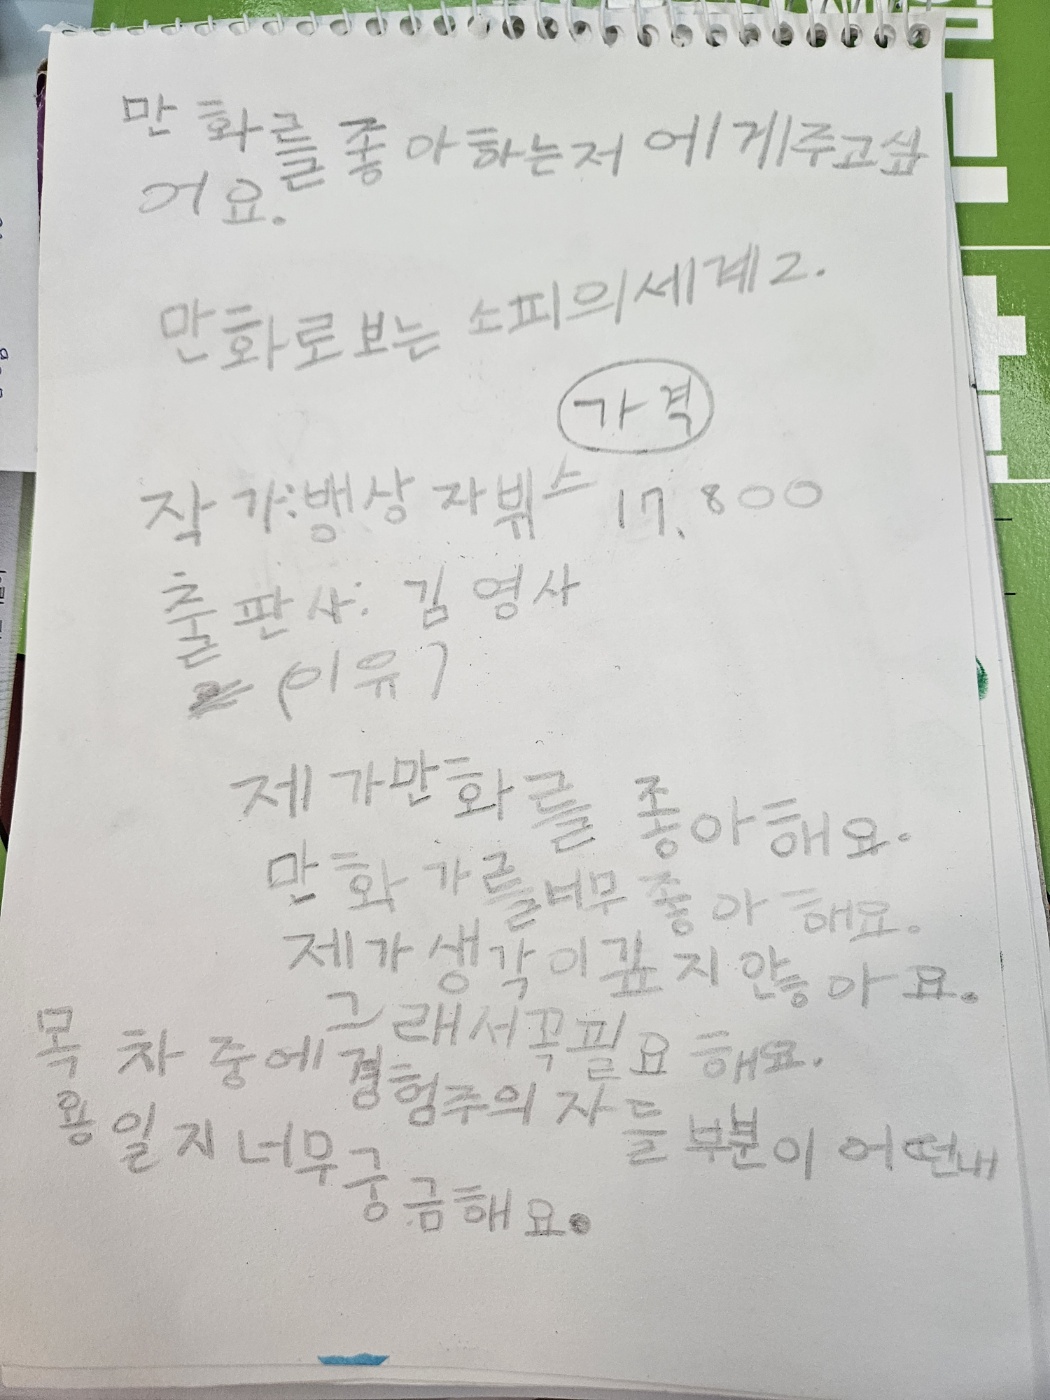 만화를좋아하는저에게주고싶
어요.
만화로보는 소피의세계2.
가격
작가:뱅상 자뷔스 17.800
출판사: 김영사
(이유)
제가만화를 좋아해요.
만화가를너무좋아해요.
제가생각이깊지안놓아요.
그래서꼭필요해요.
목차중에경험주의자들부분이어떤내
용일지너무궁금해요.